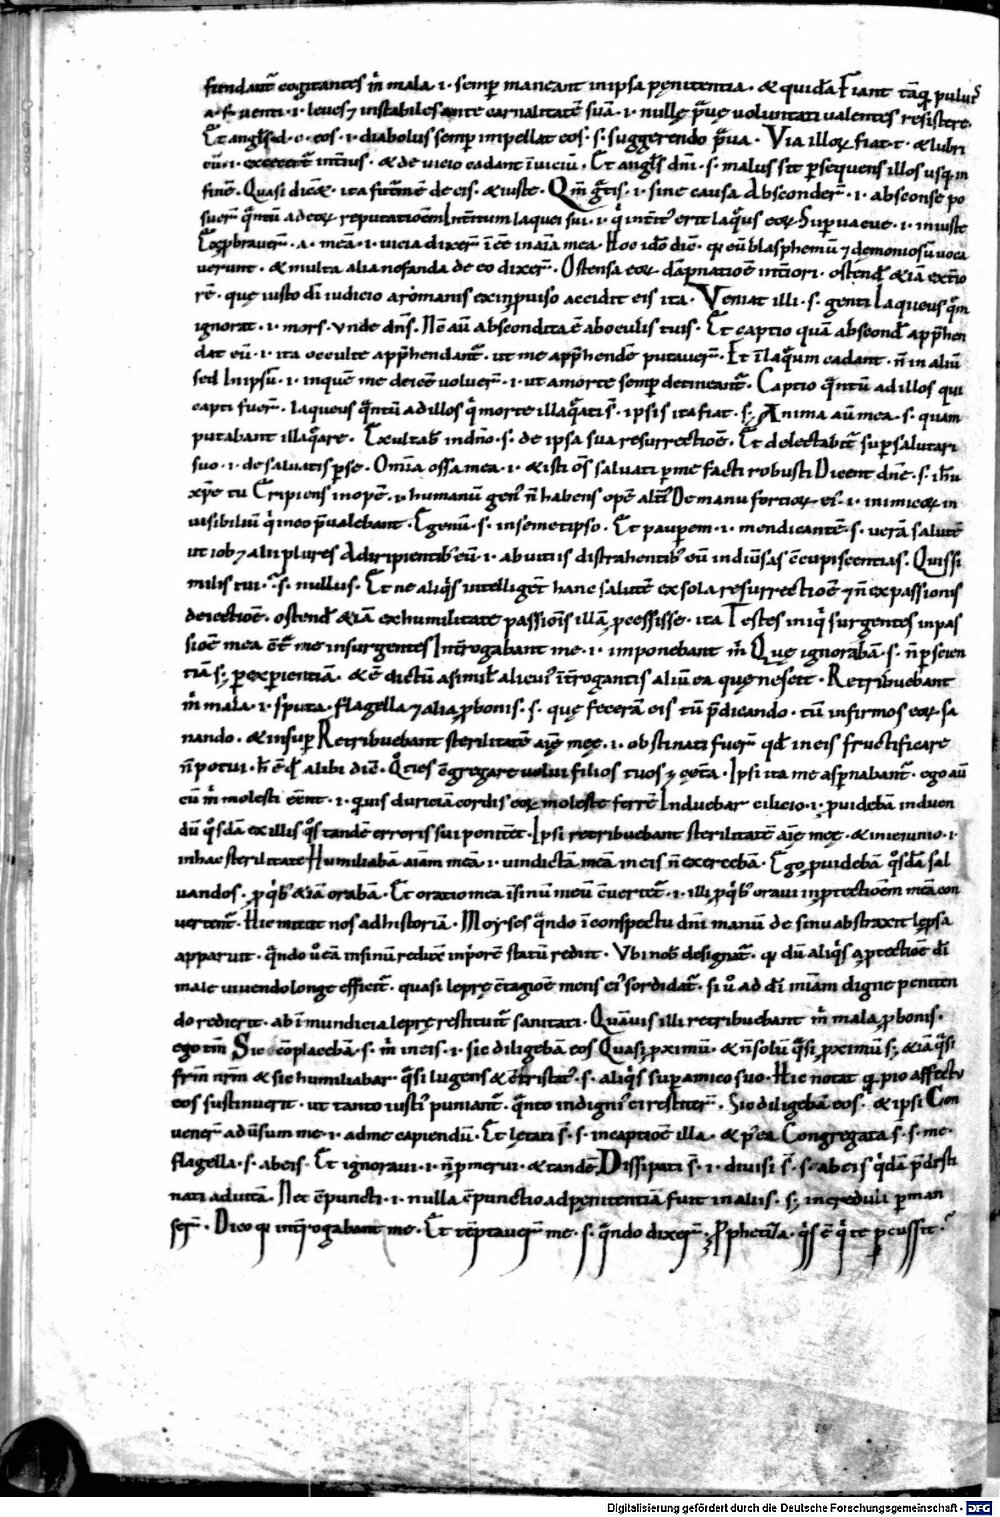 fundant̃ cogitantes m̃ mala .i. semp maneant in ipsa pęnitentia . & quidã Fiant tãq̃ puluis
a . f . uenti .i. leues ⁊ instabiles ante carnalitatẽ suã .i. nullę p̃uę uoluntati ualentes resistere.
Et angl̃s . d . c . eos .i. diabolus semp impellat eos . s . suggerendo p̃ua . Via illoꝝ fiat . t . & lubri
cũ .i. & de uicio cadant ĩ uiciũ . Et angl̃s dñi . s . malus sit ꝑsequens illos usq; in
finẽ . Quasi dic̃ . ita de eis . & iuste . Qm̃ gr̃tis .i. sine causa Absconder̃ .i. absconse po
suer̃ q̃ntũ ad eoꝝ reputatioẽm Int̃itum laquei sui .i. q̃ int̃it' erit laq̃us eoꝝ Supuacue .i. iniuste
Exp̃brauer̃ . a . meã .i. uicia dixer̃ ĩ ẽẽ in aĩa mea . Hoc idõ dic̃ . qꝫ eũ blasphemũ ⁊ demoniosũ uoca
uerunt . & multa alia nefanda de eo dixer̃ . Ostensa eoꝝ dãpnatioẽ int̃iori . ostend̃ & iã ext̃io
rẽ . quę iusto dĩ iudicio a romanis ex inꝑuiso accidit eis ita . Veniat illi . s . genti Laqueus q̃m
ignorat .i. mors . vnde dñs . Nc̃ aũ abscondita ẽ ab oculis tuis . Et captio quã abscond̃ app̃hen
dat eũ .i. ita occulte app̃hendant̃ . ut me app̃hendẽ putauer̃ . Et ĩ laq̃um cadant . ñ in aliũ
sed In ipsũ .i. in quẽ me deicẽ uoluer̃ .i. ut a morte semp detineant̃ . Captio q̃ntũ ad illos qui
capti fuer̃ . laqueus q̃ntũ ad illos q̃ morte illaq̃ati s̃ . ipsis ita fiat . s; Anima aũ mea . s . quam
putabant illaq̃are . Exultab̃ in dño . s . de ipsa sua resurrectioẽ . Et delectabit̃ sup salutari
suo .i. de saluatis ꝑ se . Omĩa ossa mea .i. & isti oẽs saluati ꝑ me facti robusti Dicent dñe . s . ih̃u
xp̃e tu Eripiens inopẽ .i. humanũ gen' ñ habens opẽ alt̃i' De manu fortioꝝ ei' .i. inimicoꝝ in
uisibiliũ q̃ in eo p̃ualebant . Egenũ . s . in semetipso . Et pauperem .i. mendicantẽ . s . uerã salutẽ
ut iob ⁊ alii plures A diripientib' eũ .i. a buitiis distrahentib' eũ in diũsas c̃cupiscentias . Quis si
milis tui . ? . s . nullus . Et ne aliq̃s intelliget̃ hanc salutẽ ex sola resurrectioẽ ⁊ ñ ex passionis
deiectioẽ . ostend̃ & iã ex humilitate passioñis illã ꝓcessisse . ita Testes iniq̃ surgentes in pas
sioẽ mea cc̃t̃ me insurgentes Int̃rogabant me .i. imponebant m̃ Quę ignorabã . s . ñ ꝑ scien
tiã s; ꝑ experientiã . & ẽ dictũ a simil̃ alicui' ĩt̃rogantis aliũ ea quę nescit . Retribuebant
m̃ mala .i. sputa . flagella ⁊ alia ꝓ bonis . s . quę fecerã eis tũ p̃dicando . tũ infirmos eoꝝ sa
nando . & insup Retribuebant sterilitatẽ aĩę męę .i. obstinati fuer̃ qd̃ in eis fructificare
ñ potui . h̃ ẽ qd̃ alibi dic̃ . Qt̃ies c̃gregare uolui filios tuos ⁊ cęt̃a . Ipsi ita me aspnabant̃ . ego aũ
cũ m̃ molesti eẽnt .i. quis duriciã cordis eoꝝ moleste ferrẽ Induebar cilicio .i. ꝓuidebã induen
dũ q̃sdã ex illis q̃s tandẽ erroris sui penitet̃ . Ipsi retribuebant sterilitatẽ aĩę męę . & in ieiunio .i.
in hac sterilitate Humiliabã aĩam meã .i. uindictã meã in eis ñ exercebã . Ego ꝓuidebã q̃sdã sal
uandos . ꝓ q̃b' & iã orabã . Et oratio mea ĩ sinũ meũ c̃uertet̃ .i. illi ꝓ q̃b' oraui in ꝓtectioẽm meã con
uertent̃ . Hic mittit nos ad historiã . Moyses q̃ndo ĩ conspectu dñi manũ de sinu abstraxit lępsa
apparuit . q̃ndo u̾o eã in sinũ reduxit in p̃orẽ statũ rediit . Vbi nob̃ designat̃ . qꝫ dũ aliq̃s a ꝓtectioẽ dĩ
male uiuendo longe efficit̃ . quasi leprę c̃tagioẽ mens ei' sordidat̃ . si u̾o ad dĩ mĩam digne peniten
do redierit . ab ĩmundicia leprę restituit̃ sanitati . Quãuis illi retribuebant m̃ mala ꝓ bonis .
ego tm̃ Sic cõplacebã . s . m̃ in eis .i. sic diligebã eos Quasi ꝓximũ . & ñ solũ q̃si ꝓximũ s; & iã q̃si
fr̃m nr̃m & sic humiliabar . q̃si lugens & c̃tristat' . s . aliq̃s sup amico suo . Hic notat qꝫ pio affectu
eos sustinuerit . ut tanto iusti' puniant̃ . q̃nto indigni' ei restiter̃ . Sic diligebã eos . & ipsi Con
uener̃ adũsum me .i. ad me capiendũ . Et lętati s̃ . s . in captioẽ illa . & p' ea Congregata s̃ . s . me .
flagella . s . ab eis . Et ignoraui .i. ñ ꝓmerui . & tandẽ Dissipati s̃ .i. diuisi s̃ . s . ab eis q̃dã p̃desti
nati ad uitã . Nec c̃puncti .i. nulla c̃punctio ad pęnitentiã fuit in aliis . s; increduli ꝑman
ser̃ . Dico qꝫ int̃rogabant me . Et tẽptauer̃ me . s . q̃ndo dixer̃ . Ꝓphetiza . q̃s ẽ q̃ te ꝑcussit ?